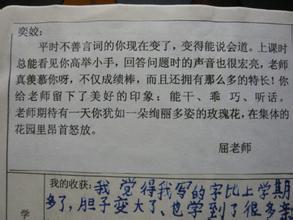 奕姣:
平时不善言词的你现在变了，变得能说会道。上课时
总能看见你高举小手，回答问题时的声音也很宏亮，老师
真羡慕你呀，不仅成绩棒，而且还拥有那么多的特长！你
给老师留下了美好的印象：能干、乖 巧、听话。
老师期待有一天你犹如一朵绚丽多姿的玫瑰花，在集体的
花园里昂首怒放。
屈老师
学
我的收获：我 觉得我写的字比上学期
多了，胆子变大了、也学到了很多